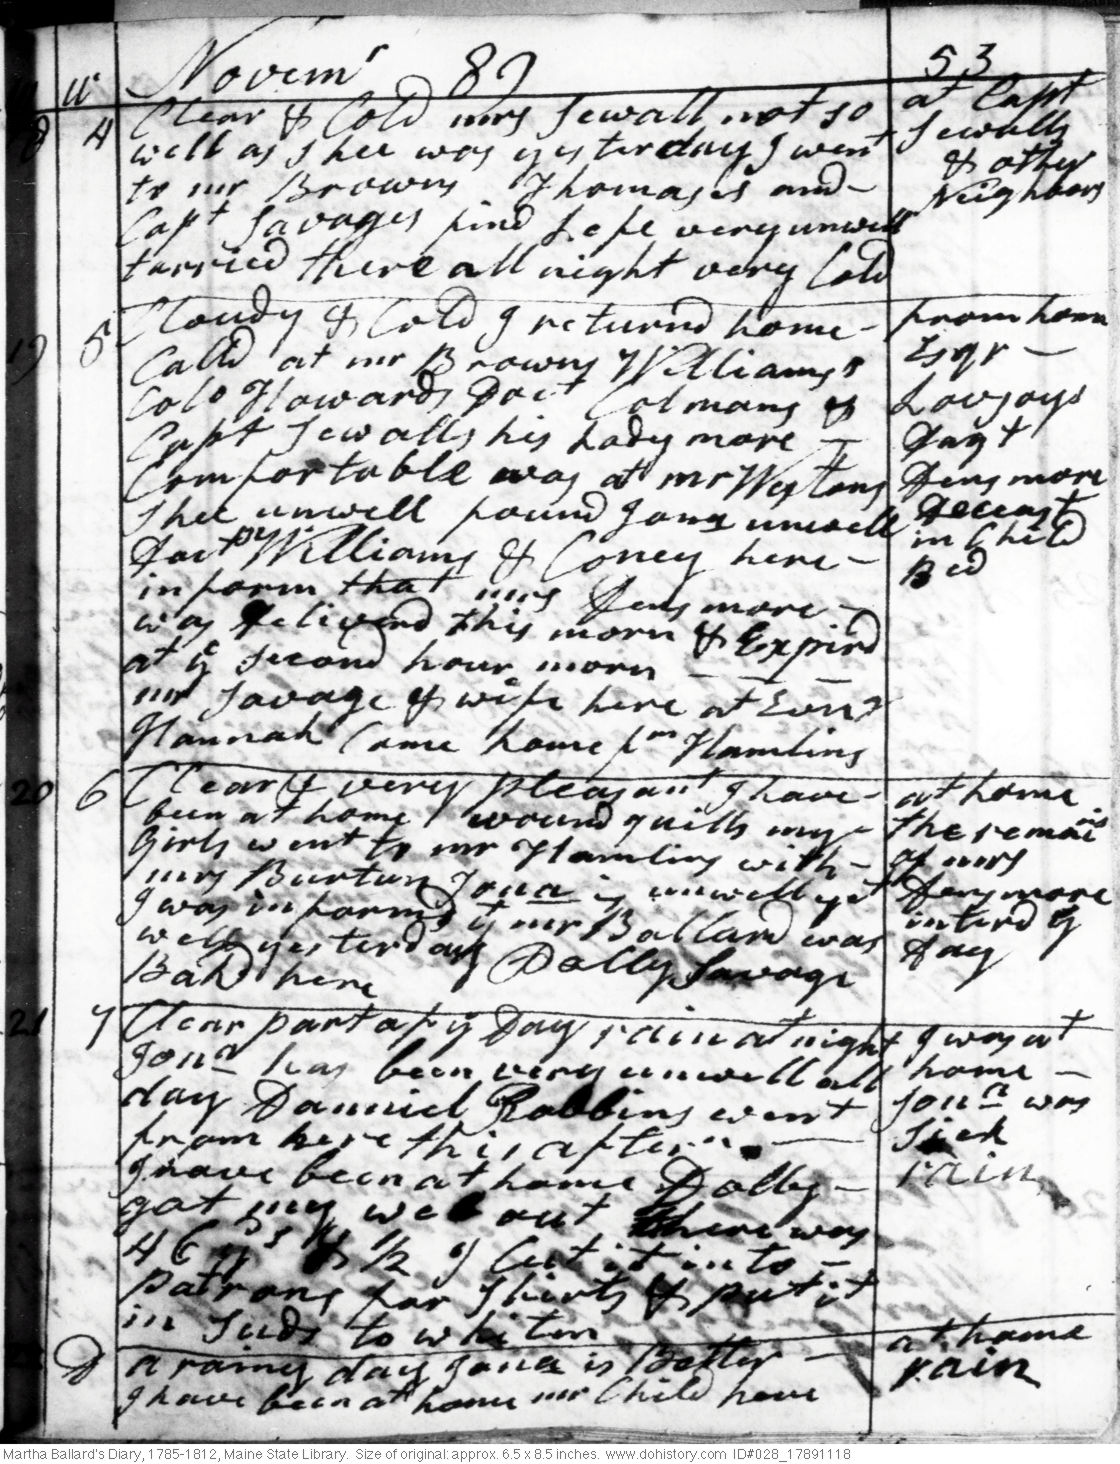 11 W Novemr 89 53
18 4 Clear & Cold mrs Sewall not so
well as shee was yesterday I went
to mr Browns Thomas's and
Capt Savages find Lefe very unwell
tarried there all night very Cold
at Capt
Sewalls
& other
Neighbors
19 5 Cloudy & Cold I returnd home
Calld at mr Browns Williams's
Colo Howards Doct Colmans &
Capt Sewalls his Lady more
Comfortable was at mr Westons
shee unwell found Jona unwell
Doct Williams & Coney here
inform that mrs Densmore
was Deliverd this morn & Expird
at ye second hour morn
mr Savage & wife here at Evng
Hannah Came home fm Hamlins
from home
Esqr
Lovejoys
Dagt
Densmore
Deceast
in Child
Bed
20 6 Clear & very pleasant I have
been at home wound quills my
Girls went to mr Hamlins with
mrs Burtun Jona is unwell yet
I was informd yt mr Ballard was
well yesterday Dolly Savage
Bakd here
at home
the remains
of mrs
Densmore
interd ys
Day
21 7 Clear part of ye Day rain at night
Jona has been very unwell all
day Danniel Robbins went
from here this aftern
I have been at home Dolly
got my web out there was
46 yds & 1/2 I Cut it into
patrons for Shirts & put it
in suds to whiten
I was at
home
Jona was
sick
rain
D a rainy day Jona is Better
I have been at home mr Child here
at home
rain
Martha Ballard's Diary, 1785-1812, Maine State Library. Size of original: approx. 6.5 x 8.5 inches. www.dohistory.com ID#028_17891118